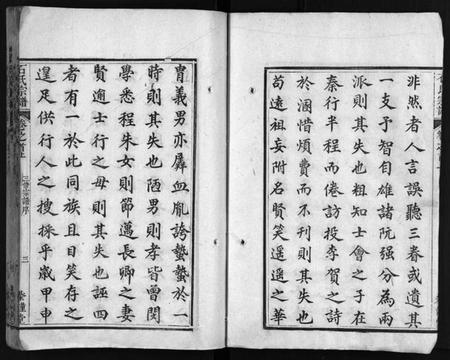 非然者人言誤聽三春或遺其
一支予智自雄諸阮强分為兩
派則其失也粗知士會之子在
秦行半程而倦訪投李賀之詩
於溷惜煩費而不刊則其失也
苟遠祖妄附名賢笑遥遥之華
胄義男亦羼血胤誇蟄蟄於一
時則其失也陋男則孝皆曾閔
學悉程朱女則節邁長卿之妻
賢逾士行之母則其失也誣四
者有一於此同族且目笑存之
遑足供行人之搜採乎歲甲申
石氏宗譜
三